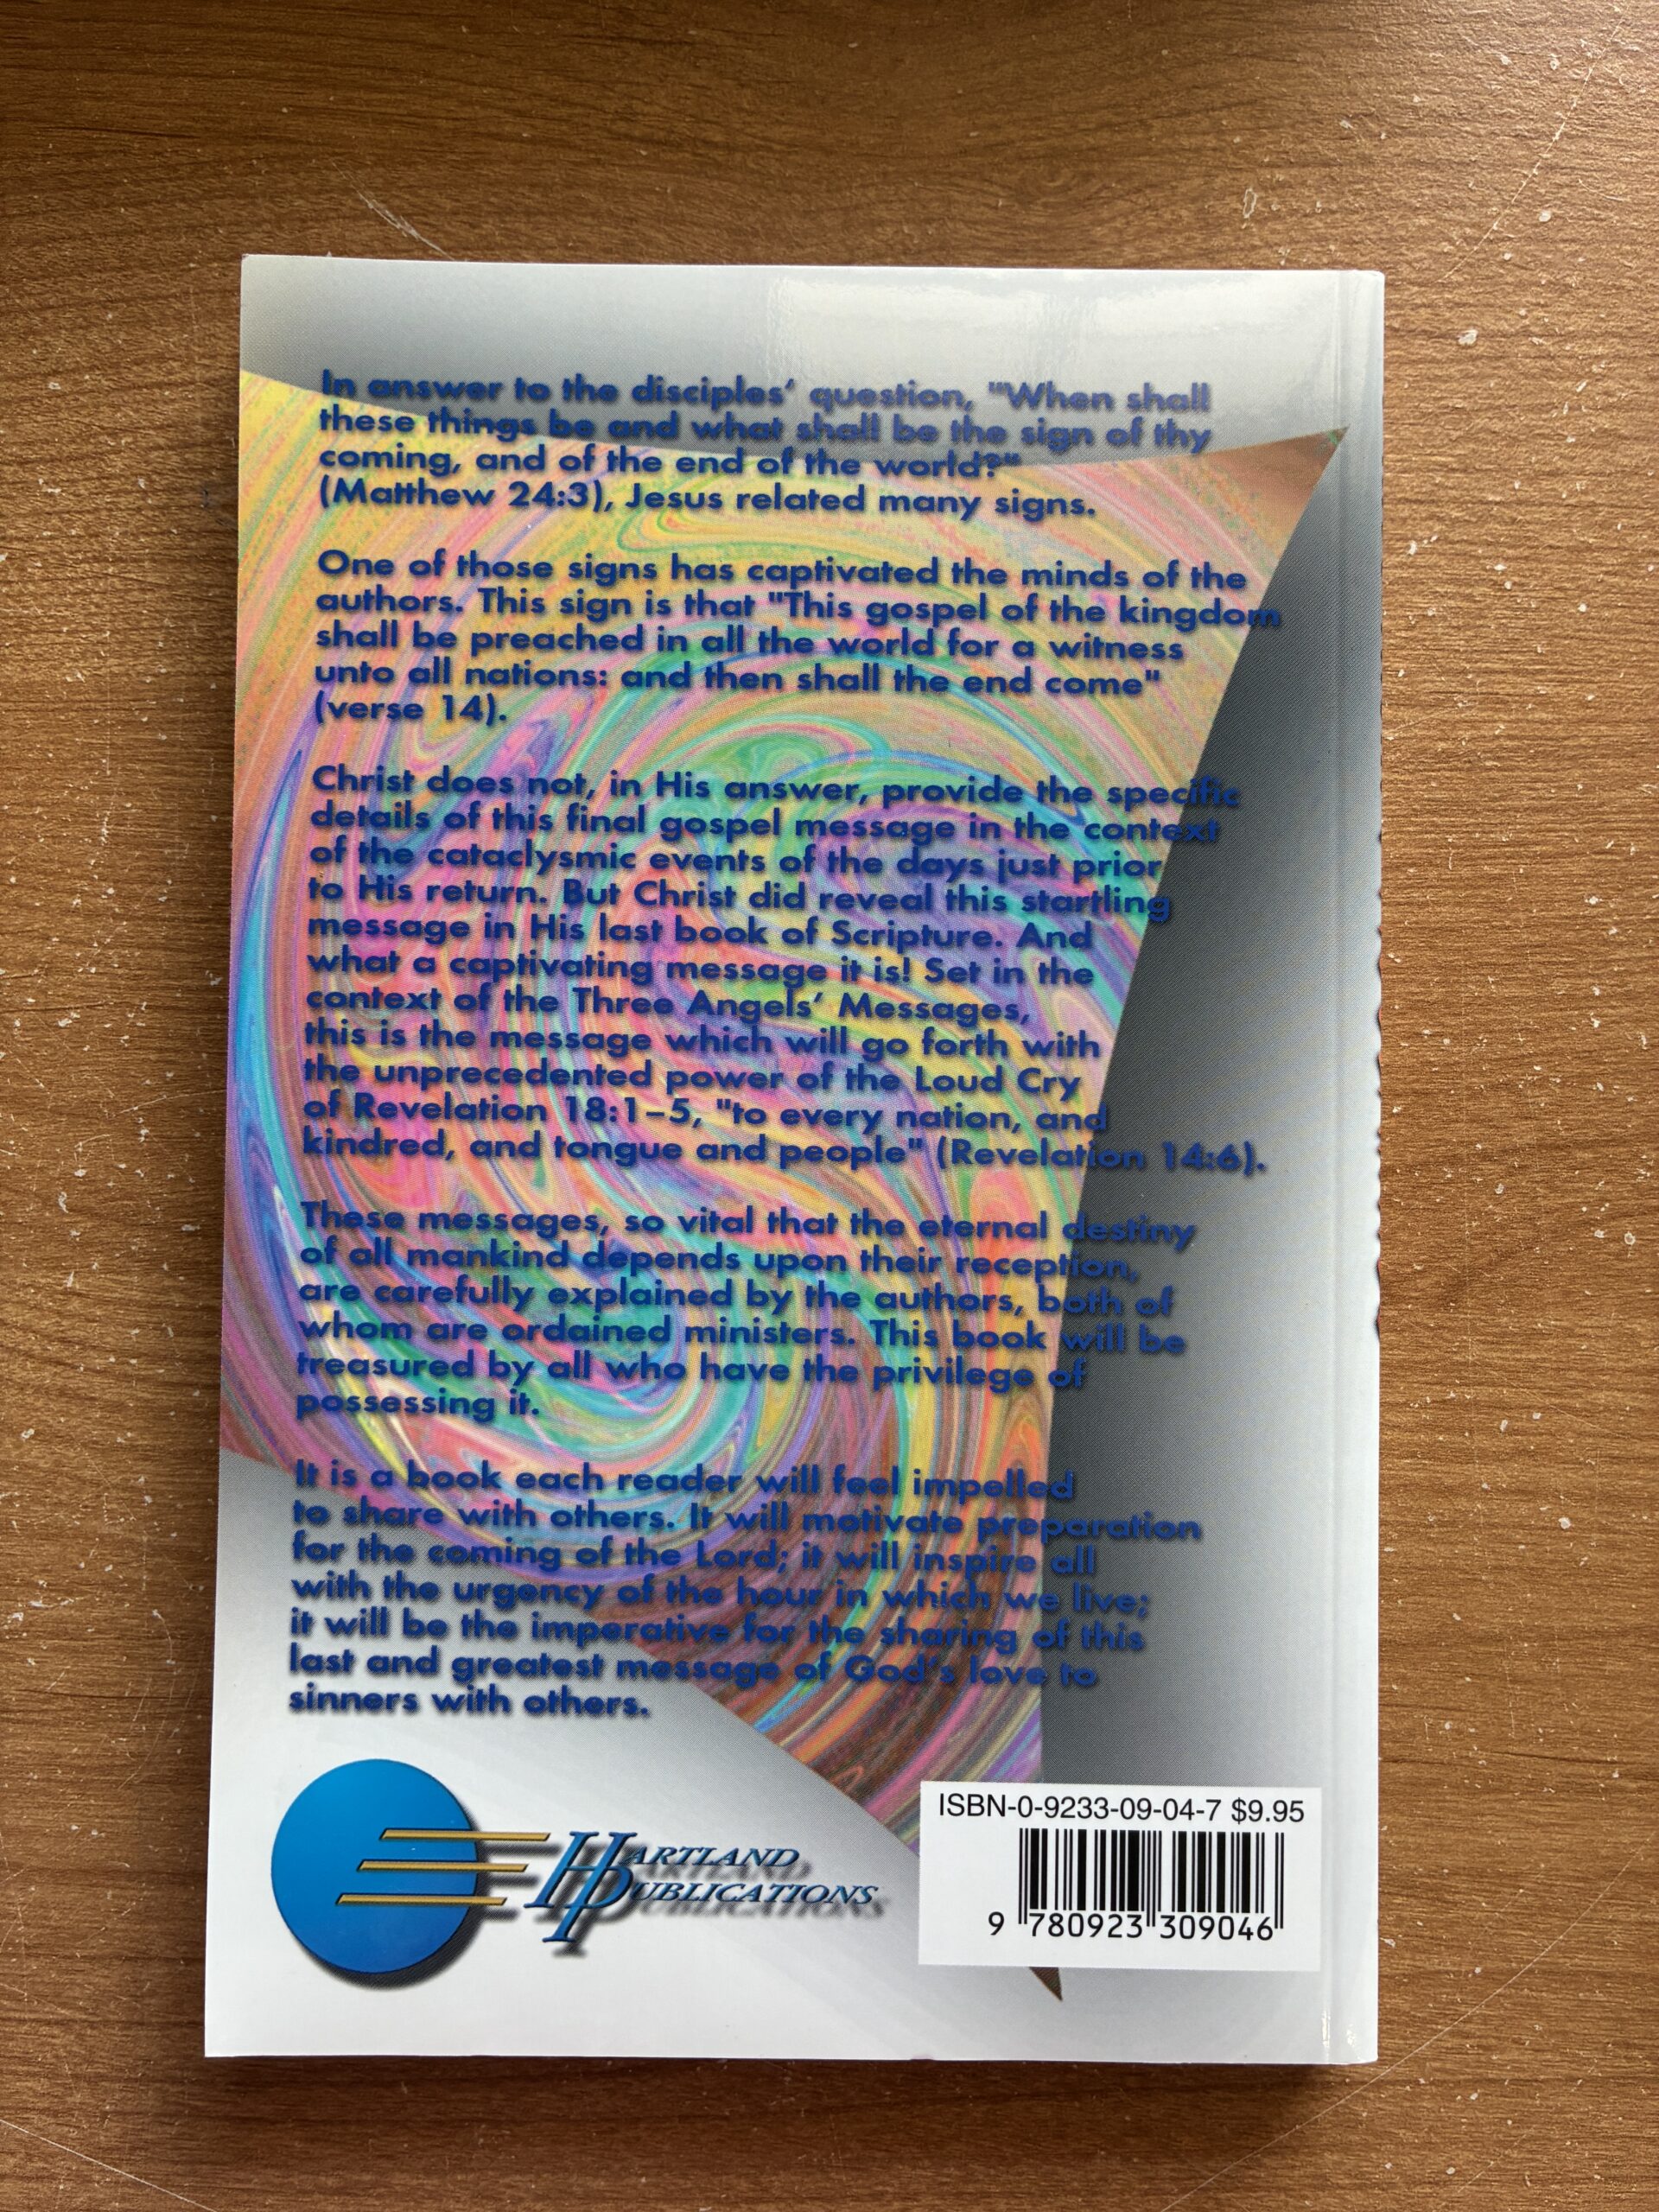 In answer to the disciples' question, "When shall
these things be and what shall be the sign of thy
coming, and of the end of the world?"
(Matthew 24:3), Jesus related many signs.
One of those signs has captivated the minds of the
authors. This sign is that "This gospel of the kingdom
shall be preached in all the world for a witness
unto all nations: and then shall the end come"
(verse 14).
Christ does not, in His answer, provide the specific
details of this final gospel message in the context
of the cataclysmic events of the days just prior
to His return. But Christ did reveal this startling
message in His last book of Scripture. And
what a captivating message it is! Set in the
context of the Three Angels' Messages,
this is the message which will go forth with
the unprecedented power of the Loud Cry
of Revelation 18:1–5, "to every nation, and
kindred, and tongue and people" (Revelation 14:6).
These messages, so vital that the eternal destiny
of all mankind depends upon their reception,
are carefully explained by the authors, both of
whom are ordained ministers. This book will be
treasured by all who have the privilege of
possessing it.
It is a book each reader will feel impelled
to share with others. It will motivate preparation
for the coming of the Lord; it will inspire all
with the urgency of the hour in which we live;
it will be the imperative for the sharing of this
last and greatest message of God's love to
sinners with others.
HARTLAND
PUBLICATIONS
ISBN-0-9233-09-04-7 $9.95
9 780923 309046